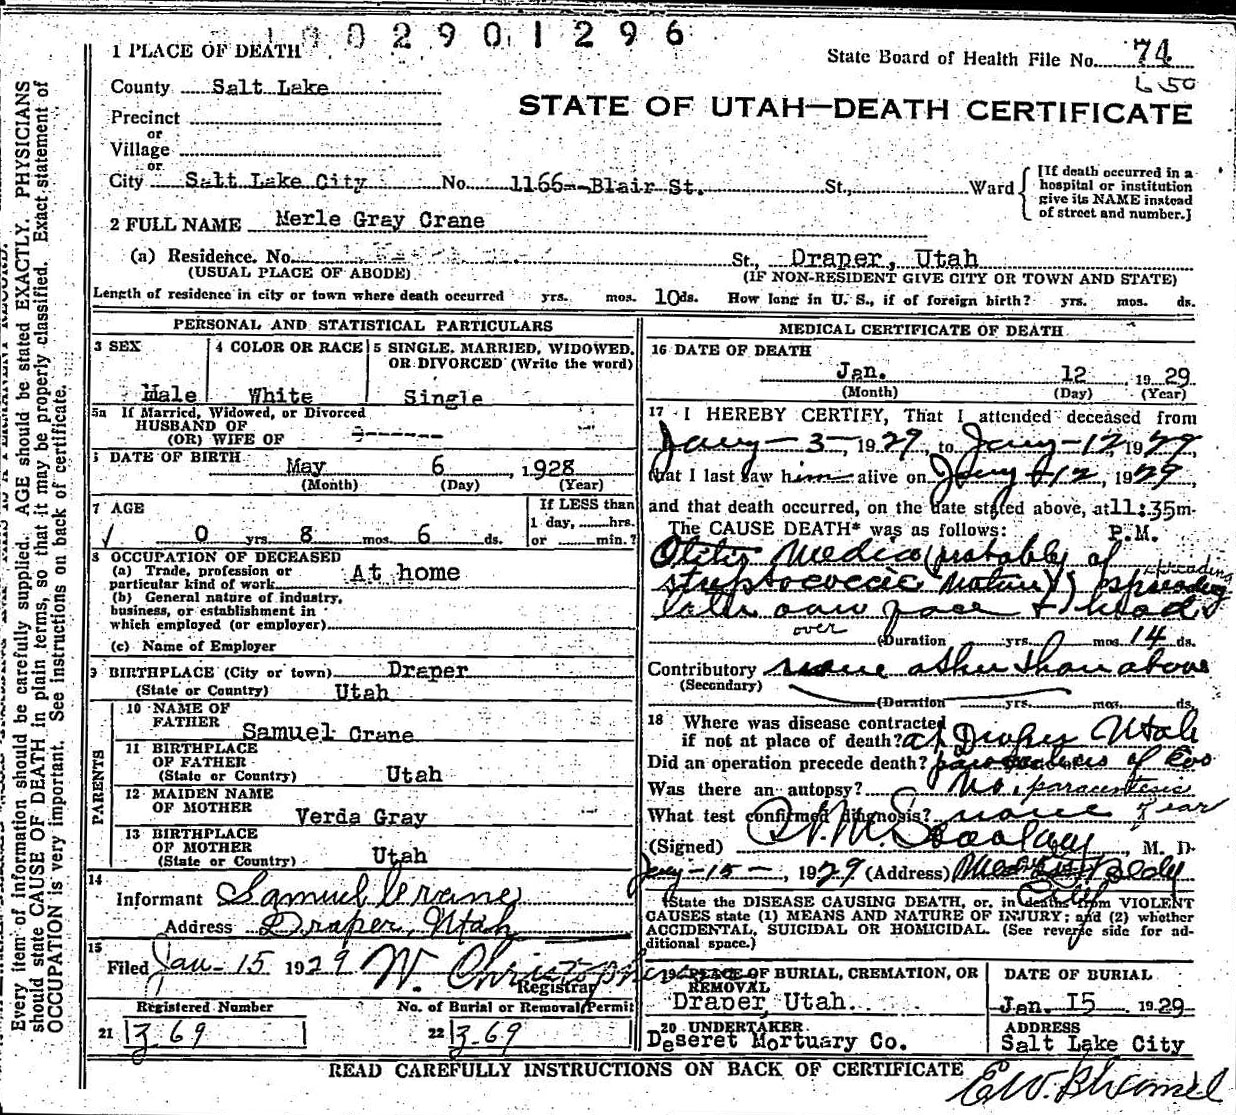 1902901296
1 PLACE OF DEATH
State Board of Health File No. 74
650
County Salt Lake
STATE OF UTAH—DEATH CERTIFICATE
Precinct
or
Village
or
City Salt Lake City No. 1166--Blair St. St., Ward
[If death occurred in a hospital or institution give its NAME instead of street and number.]
2 FULL NAME Merle Gray Crane
(a) Residence. No. St., Draper, Utah
(USUAL PLACE OF ABODE) (IF NON-RESIDENT GIVE CITY OR TOWN AND STATE)
Length of residence in city or town where death occurred yrs. mos. 10 ds. How long in U. S., if of foreign birth? yrs. mos. ds.
PERSONAL AND STATISTICAL PARTICULARS
3 SEX
Male
4 COLOR OR RACE
White
5 SINGLE, MARRIED, WIDOWED, OR DIVORCED (Write the word)
Single
5a If Married, Widowed, or Divorced
HUSBAND OF
(OR) WIFE OF
DATE OF BIRTH May 6, 1928
(Month) (Day) (Year)
7 AGE
0 yrs. 8 mos. 6 ds.
If LESS than
1 day, hrs.
or min.?
8 OCCUPATION OF DECEASED
(a) Trade, profession or
particular kind of work At home
(b) General nature of industry,
business, or establishment in
which employed (or employer)
(c) Name of Employer
9 BIRTHPLACE (City or town) Draper
(State or Country) Utah
PARENTS
10 NAME OF
FATHER
Samuel Crane
11 BIRTHPLACE
OF FATHER
(State or Country) Utah
12 MAIDEN NAME
OF MOTHER
Verda Gray
13 BIRTHPLACE
OF MOTHER
(State or Country) Utah
14
Informant Samuel Crane
Address Draper, Utah
15
Filed Jan-15 1929 W. Christopherson
Registrar
Registered Number No. of Burial or Removal Permit
21 Z.69 22 Z.69
MEDICAL CERTIFICATE OF DEATH
16 DATE OF DEATH
Jan. 12, 1929
(Month) (Day) (Year)
17 I HEREBY CERTIFY, That I attended deceased from
Jany-3-, 1929, to Jany-12, 1929
that I last saw him alive on Jany 12, 1929,
and that death occurred, on the date stated above, at 11:35 m.
The CAUSE DEATH* was as follows: P.M.
Otitis Media (probably of
streptococcic nature) spreading
spreading
later over face & head
over
(Duration yrs. mos. 14 ds.
Contributory none other than above
(Secondary)
(Duration yrs. mos. ds.
18 Where was disease contracted
if not at place of death? at Draper Utah
Did an operation precede death? paracentesis of
Was there an autopsy? No. paracentesis
What test confirmed diagnosis? none ear
(Signed) M. D.
Jany-15-, 1929 (Address)
*State the DISEASE CAUSING DEATH, or, in deaths from VIOLENT
CAUSES state (1) MEANS AND NATURE OF INJURY; and (2) whether
ACCIDENTAL, SUICIDAL OR HOMICIDAL. (See reverse side for ad-
ditional space.)
19 PLACE OF BURIAL, CREMATION, OR
REMOVAL
Draper, Utah.
DATE OF BURIAL
Jan. 15 1929
20 UNDERTAKER
Deseret Mortuary Co.
ADDRESS
Salt Lake City
READ CAREFULLY INSTRUCTIONS ON BACK OF CERTIFICATE
Every item of information should be carefully supplied. AGE should be stated EXACTLY. PHYSICIANS
should state CAUSE OF DEATH in plain terms, so that it may be properly classified. Exact statement of
OCCUPATION is very important. See instructions on back of certificate.